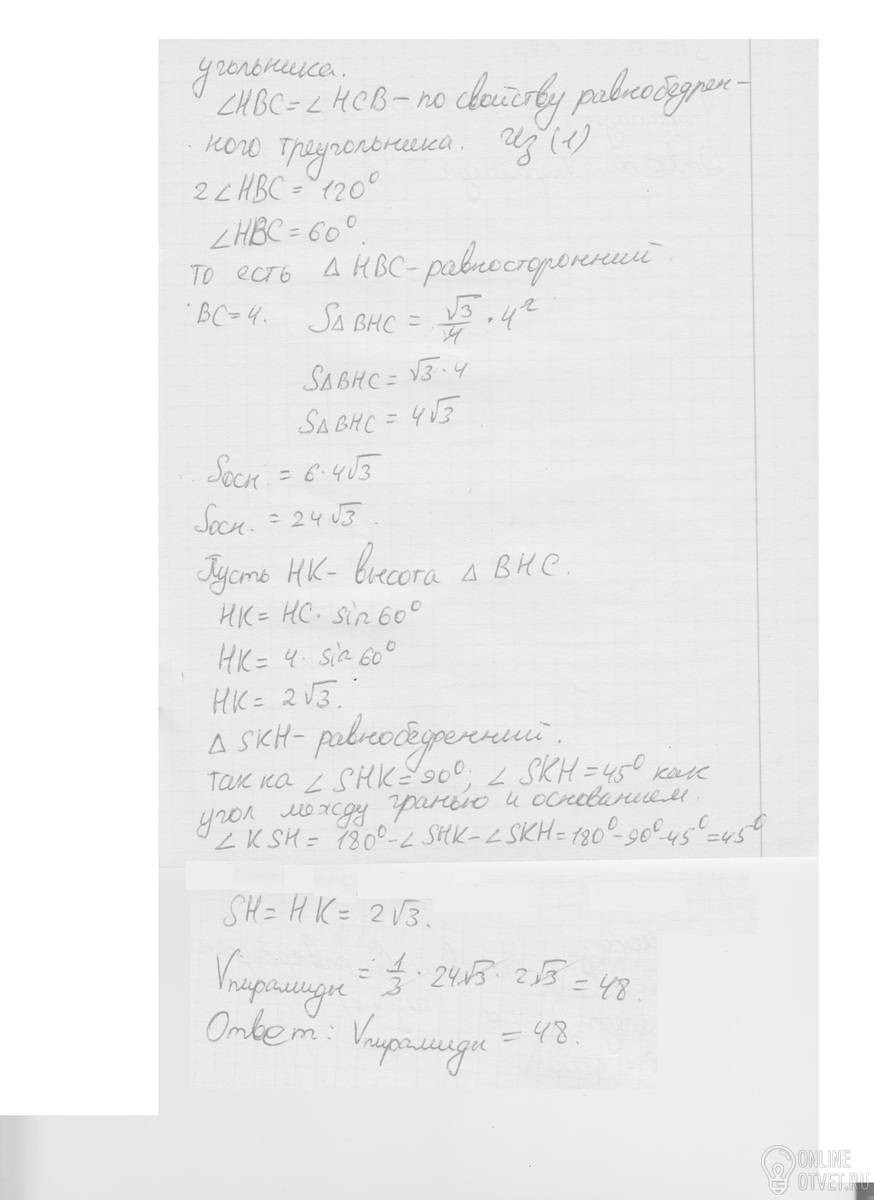 угольника.
∠HBC = ∠HCB – по свойству равнобедрен-
ного треугольника. Из (1)
2∠HBC = 120°
∠HBC = 60°.
То есть △ HBC – равносторонний.
BC = 4. S△BHC = √3/4 · 4²
S△BHC = √3 · 4
S△BHC = 4√3
Sосн. = 6 · 4√3
Sосн. = 24√3.
Пусть HK – высота △ BHC.
HK = HC · sin 60°
HK = 4 · sin 60°
HK = 2√3.
△ SKH – равнобедренный.
так ка ∠ SHK = 90°, ∠ SKH = 45° как
угол между гранью и основанием.
∠ KSH = 180° – ∠SHK – ∠SKH = 180° – 90° – 45° = 45°
SH = HK = 2√3.
Vпирамиды = 1/3 · 24√3 · 2√3 = 48.
Ответ: Vпирамиды = 48.
ONLINE
OTVET.RU